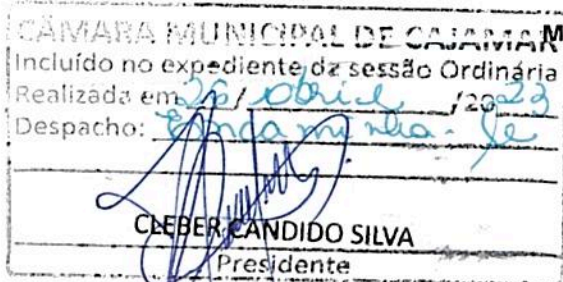 CÂMARA MUNICIPAL DE CAJAMAR M
Incluído no expediente da sessão Ordinária
Realizada em 26 / abril /2023
Despacho: Encaminha-se
CLEBER CANDIDO SILVA
Presidente